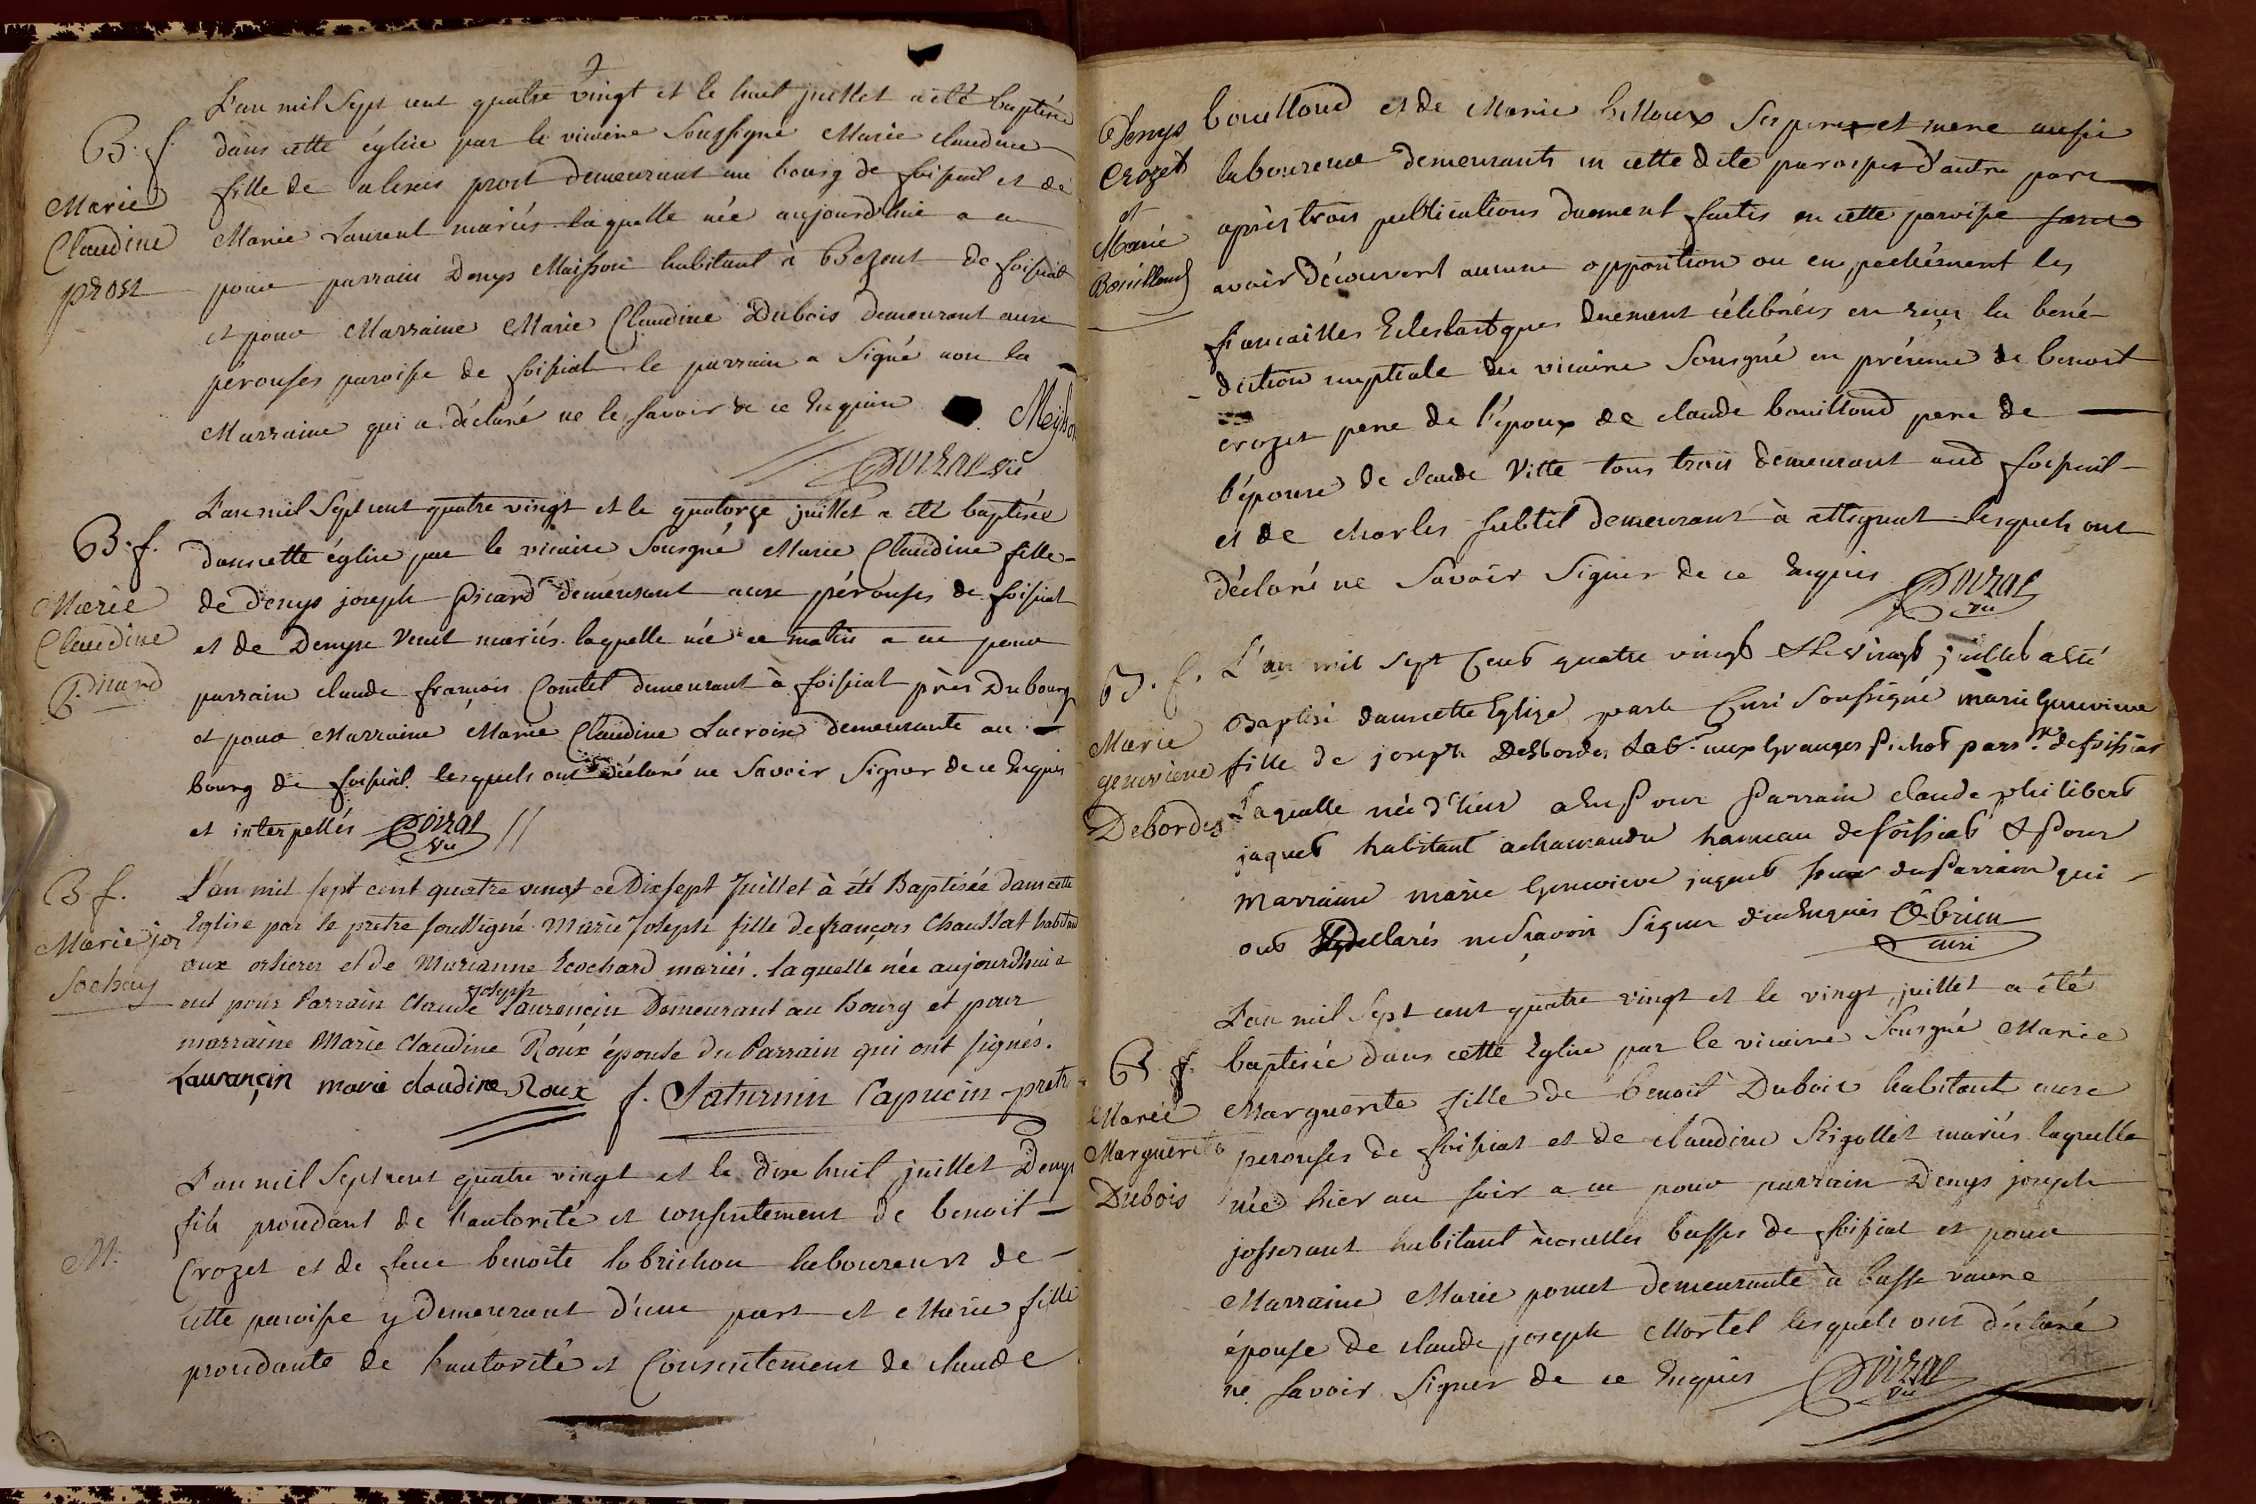 B. f.
Marie
Claudine
prost
L'an mil Sept cent quatre vingt et le huit juillet a été baptisée
dans cette église par le vicaire Soussigné Marie claudine
fille de alexis prost demeurant au bourg de foissiat et de
Marie Laurent mariés laquelle née aujourdhui a eu
pour parrain Denys Maisson habitant à Bezent de foissiat
et pour Marraine Marie Claudine Dubois demeurant aux
pérouses paroisse de foissiat le parrain a Signé non la
Marraine qui a déclaré ne le Savoir de ce Enquise
Meysson
Doizat vic
B. f.
Marie
Claudine
Picard
L'an mil Sept cent quatre vingt et le quatorze juillet a été baptisée
dans cette église par le vicaire Sousgné Marie Claudine fille
de denys joseph Picard demeurant aux pérouses de foissiat
et de Denyse Vuit mariés laquelle née ce matin a eu pour
parrain claude francois Comtet demeurant à foissiat près Du bourg
et pour Marraine Marie Claudine Lacroix demeurante au
bourg de foissiat lesquels ont déclaré ne Savoir Signer de ce Enquis
et interpellés Doizat
vic
B f.
Marie jos
Sochay
L'an mil sept cent quatre vingt ce Dixsept Juillet à été Baptisée dans cette
Eglise par le pretre soussigné Marie Joseph fille de françois Chaussat habitant
aux orsieres et de Marianne Ecochard mariés. laquelle née aujourdhui a
eut pour Parrain Claude joseph Laurençin Demeurant au bourg et pour
marraine Marie Claudine Roux épouse du Parrain qui ont signés.
Laurançin marie claudine Roux f. Saturnin Capucin pretr
M.
L'an mil Sept cent quatre vingt et le dix huit juillet Denys
fils proudant de l'autorité et consentement de benoit
Crozet et de feue benoite lobrichon laboureurs de
cette paroisse y demeurant d'une part et Marie fille
proudante de l'autorité et Consentement de claude
Denys
Crozet
et
Marie
Bouilloud
bouilloud et de Marie billoux Ses pere et mere aussi
laboureur demeurants en cette dite paroisse d'autre part
après trois publications duement faites en cette paroisse sans
avoir découvert aucune opposition ou empechément les
fiancailles Eclesiastiques duement célébrées on reçu la béné-
diction nuptiale du vicaire Sousgné en présence de benoit
crozet pere de l'époux de claude bouilloud pere de
l'épouse de claude Vitte tous trois demeurant aud foissiat
et de charles subtil demeurant à attignat lesquels ont
déclaré ne Savoir Signer de ce Enquis Doizat
vic
B. f.
Marie
genevieve
Debordes
L'an mil sept Cent quatre vingt & le vingt juillet a été
Baptisé dans cette Eglize par le Curé soussigné marie Genevieve
fille de joseph Desbordes Lab.r aux Granges Pichot pars.e de foissiat
Laquelle née d'hier a Eu pour Parrain claude philibert
jaquet habitant a chamandre hameau de foissiat & pour
marraine marie Genevieve jaquet sœur du Parrain qui
ont declarés ne Sçavoir Signer de ce Enquis Obrien
curé
B. f.
Marie
Marguerite
Dubois
L'an mil Sept cent quatre vingt et le vingt juillet a été
baptisée dans cette Eglise par le vicaire Sousgné Marie
Marguerite fille de benoit Dubois habitant aux
perouses de foissiat et de claudine Rigollet mariés laquelle
née hier au soir a eu pour parrain Denys joseph
josserant habitant à corcelles basses de foissiat et pour
Marraine Marie ponet demeurante à basse vavre
épouse de claude joseph Mortel lesquels ont déclaré
ne Savoir Signer de ce Enquis Doizat
vic